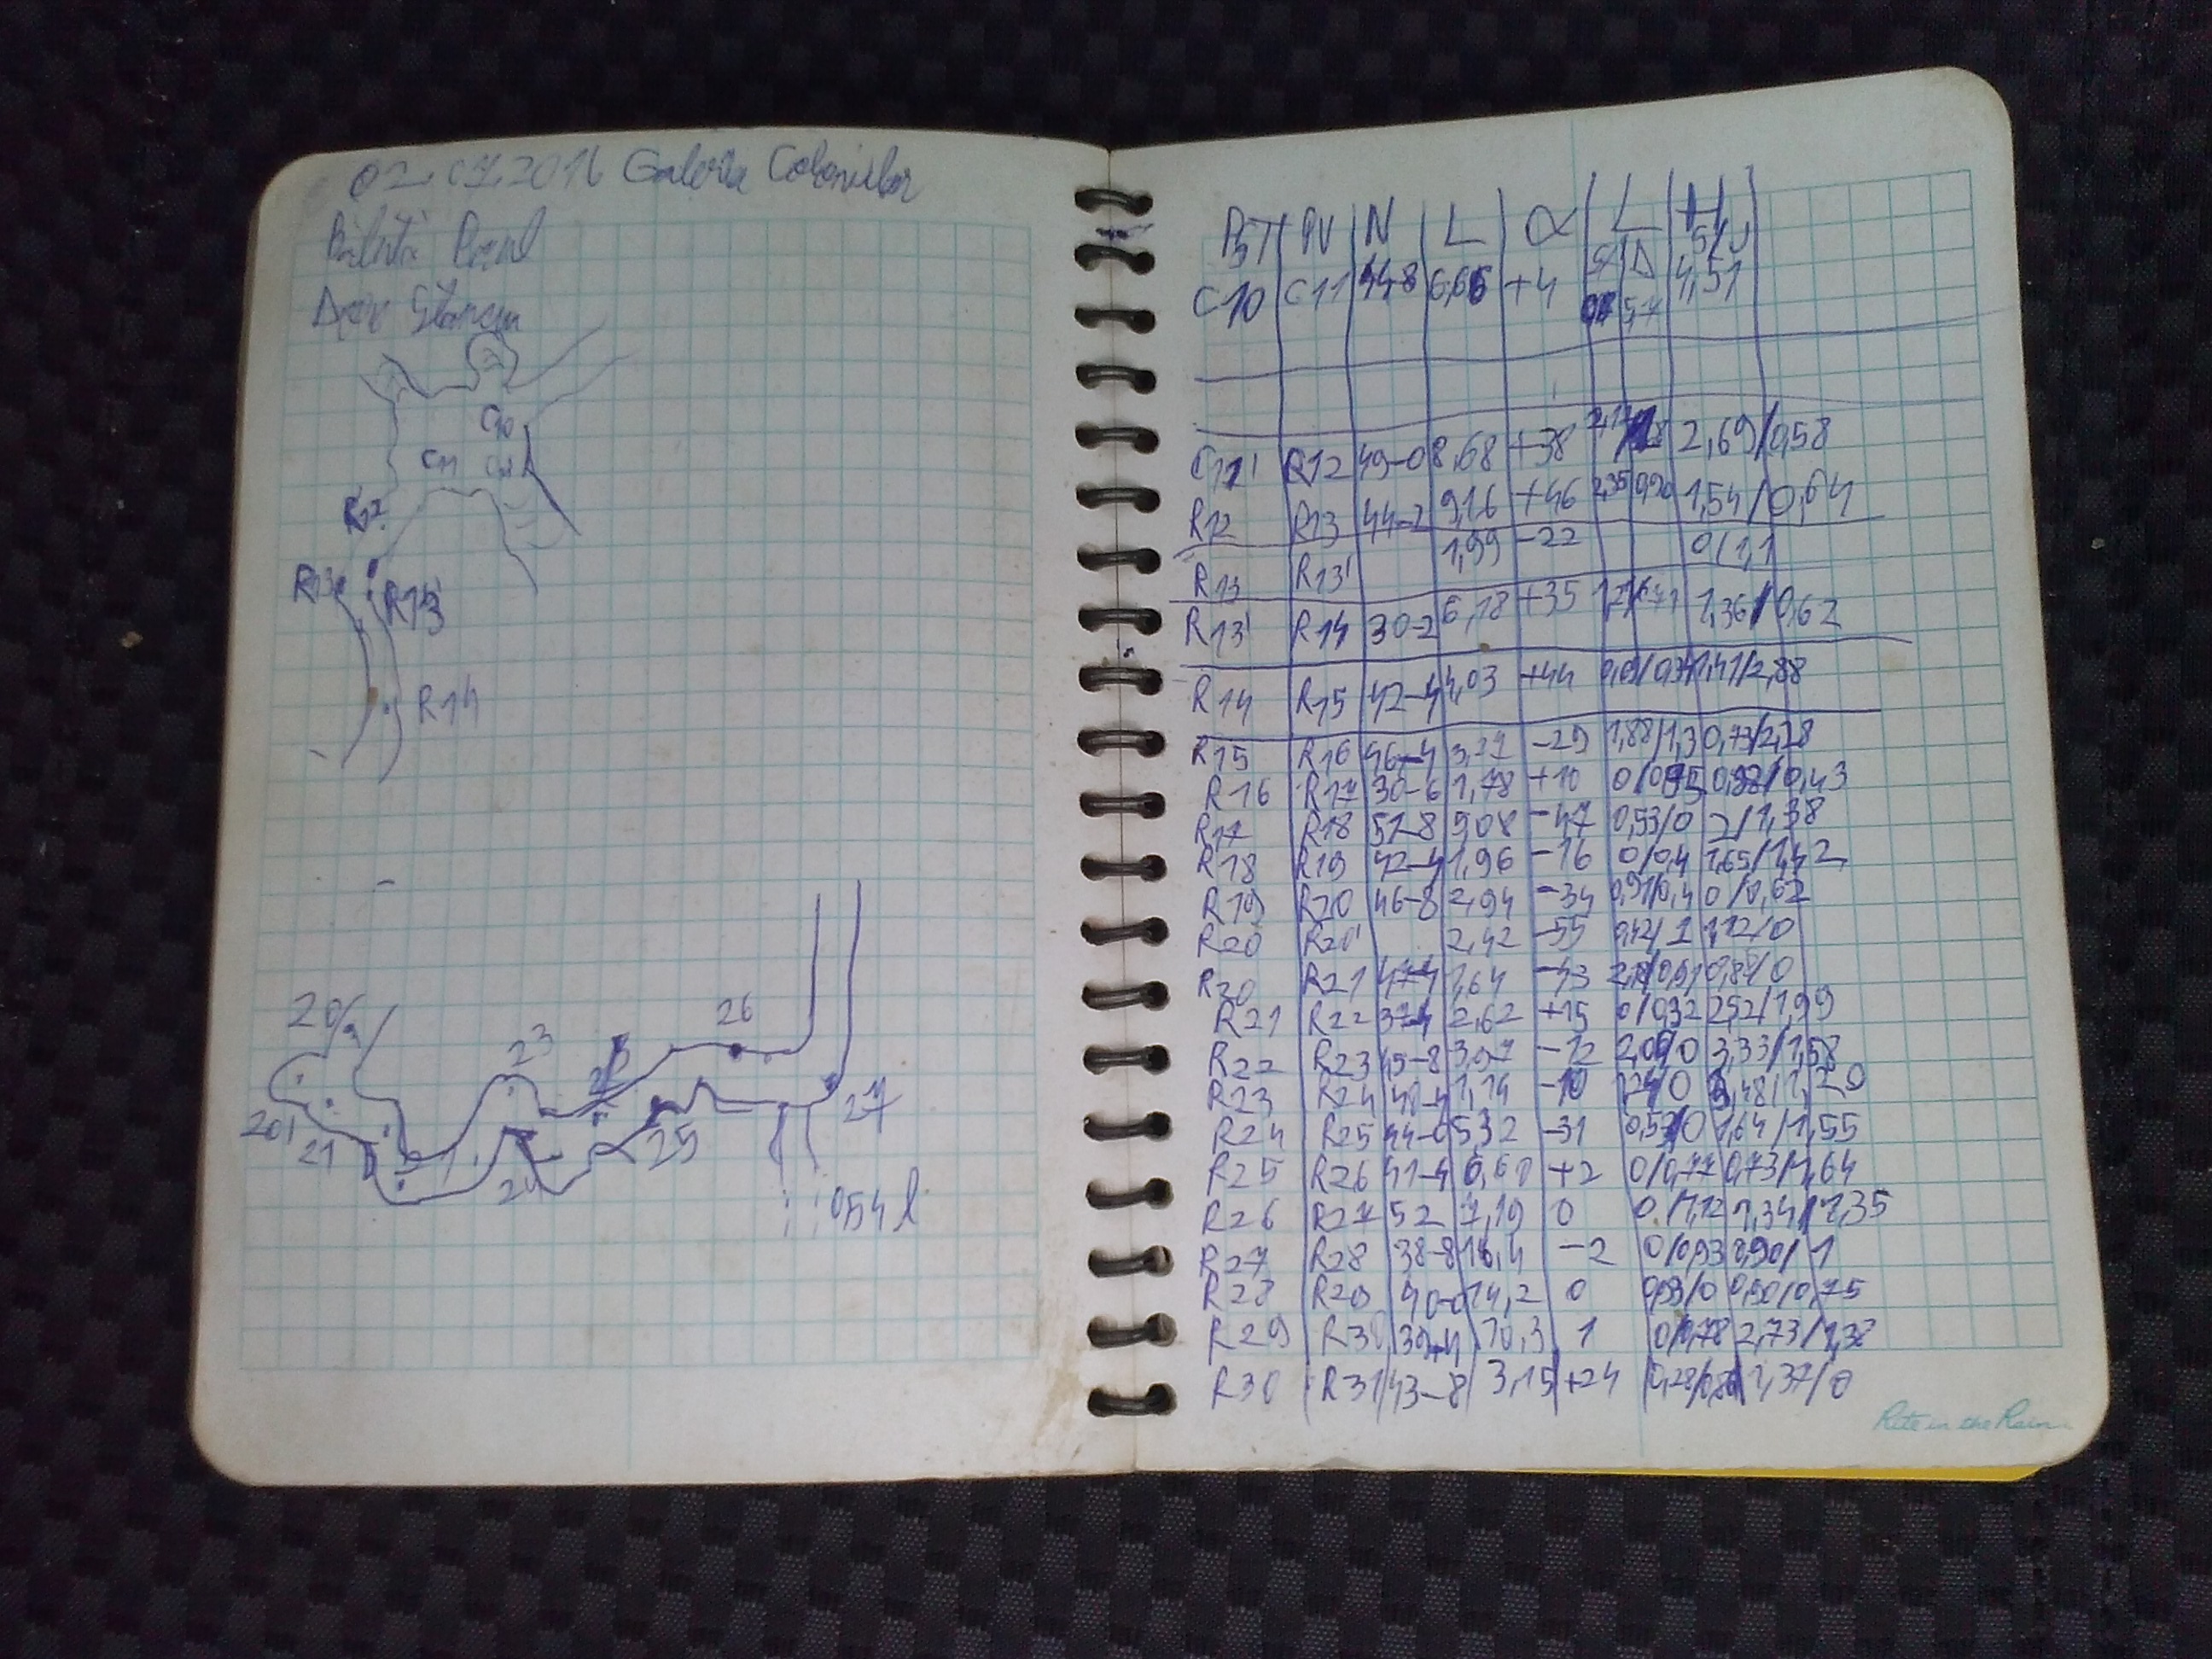 02.07.2016 Galeria Coloniilor
C10
C11
R12
R13
R13'
R14
20/9
23
26
20'
21
25
27
054 l
PST PV N L α L H
S/D S/J
C10 C11 44-8 6,66 +4 4,51
C11' R12 49-0 8,68 +38 2,69/0,58
R12 R13 44-2 9,16 +46 2,35 0,90 1,54/0,64
R13 R13' 1,99 -22 0/1,1
R13' R14 30-2 6,18 +35 1,36/0,62
R14 R15 42-4 4,03 +44 1,41/2,88
R15 R16 46-4 3,21 -29 1,88/1,3 0,73/2,28
R16 R17 30-6 1,78 +10 0/0,95 0,98/0,43
R17 R18 51-8 9,08 -47 0,53/0 2/1,38
R18 R19 42-4 1,96 -16 0/0,4 1,65/1,42
R19 R20 46-8 2,94 -34 0,91/0,4 0/0,62
R20 R20' 2,42 -55 0,42/1 1,12/0
R20 R21 47-4 1,64 -43 0,84/0
R21 R22 37-4 2,62 +15 0/0,32 2,52/1,99
R22 R23 45-8 -12 3,33/1,58
R23 R24 40-4 1,14 -10 1,24/0
R24 R25 44-0 5,32 -31 0,57/0 1,64/1,55
R25 R26 41-4 6,60 +2 0/0,77 0,73/1,64
R26 R27 52 7,19 0 0/1,12 1,34/1,35
R27 R28 38-8 16,4 -2 0/0,93 0,90/1
R28 R29 40-0 14,2 0 0,93/0 0,50/0,75
R29 R30 39-4 10,3 1 0/0,78 2,73/1,38
R30 R31 43-8 3,15 +24 1,37/0
Rite in the Rain